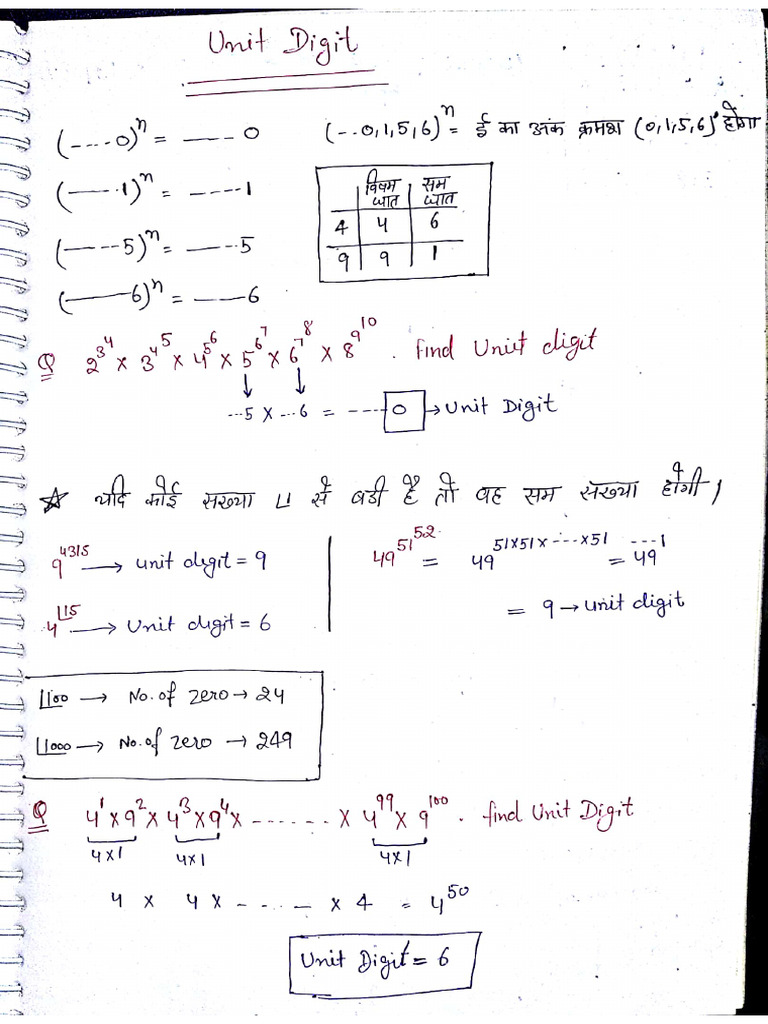 Unit Digit
(----0)ⁿ = ---- 0
(--0,1,5,6)ⁿ = ई का अंक क्रमश (0,1,5,6) होगा
(----1)ⁿ = -----1
विषम घात सम घात
4 4 6
9 9 1
(-----5)ⁿ = -----5
(----6)ⁿ = ----6
Q 2^3^4 × 3^4^5 × 4^5^6 × 5^6^7 × 6^7^8 × 8^9^10 . find Unit digit
↓ ↓
---5 × ---6 = ----0 → Unit Digit
☆ यदि कोई सख्या ∟1 से बडी है तो वह सम संख्या होगी।
9^4315 → unit digit = 9
4^∟15 → Unit digit = 6
49^51^52 = 49^51×51×----×51 = 49^---1
= 9 → unit digit
∟100 → No. of zero → 24
∟1000 → No. of zero → 249
Q 4^1 × 9^2 × 4^3 × 9^4 × ------ × 4^99 × 9^100 . find Unit Digit
4×1 4×1 4×1
4 × 4 × ----- × 4 = 4^50
Unit Digit = 6